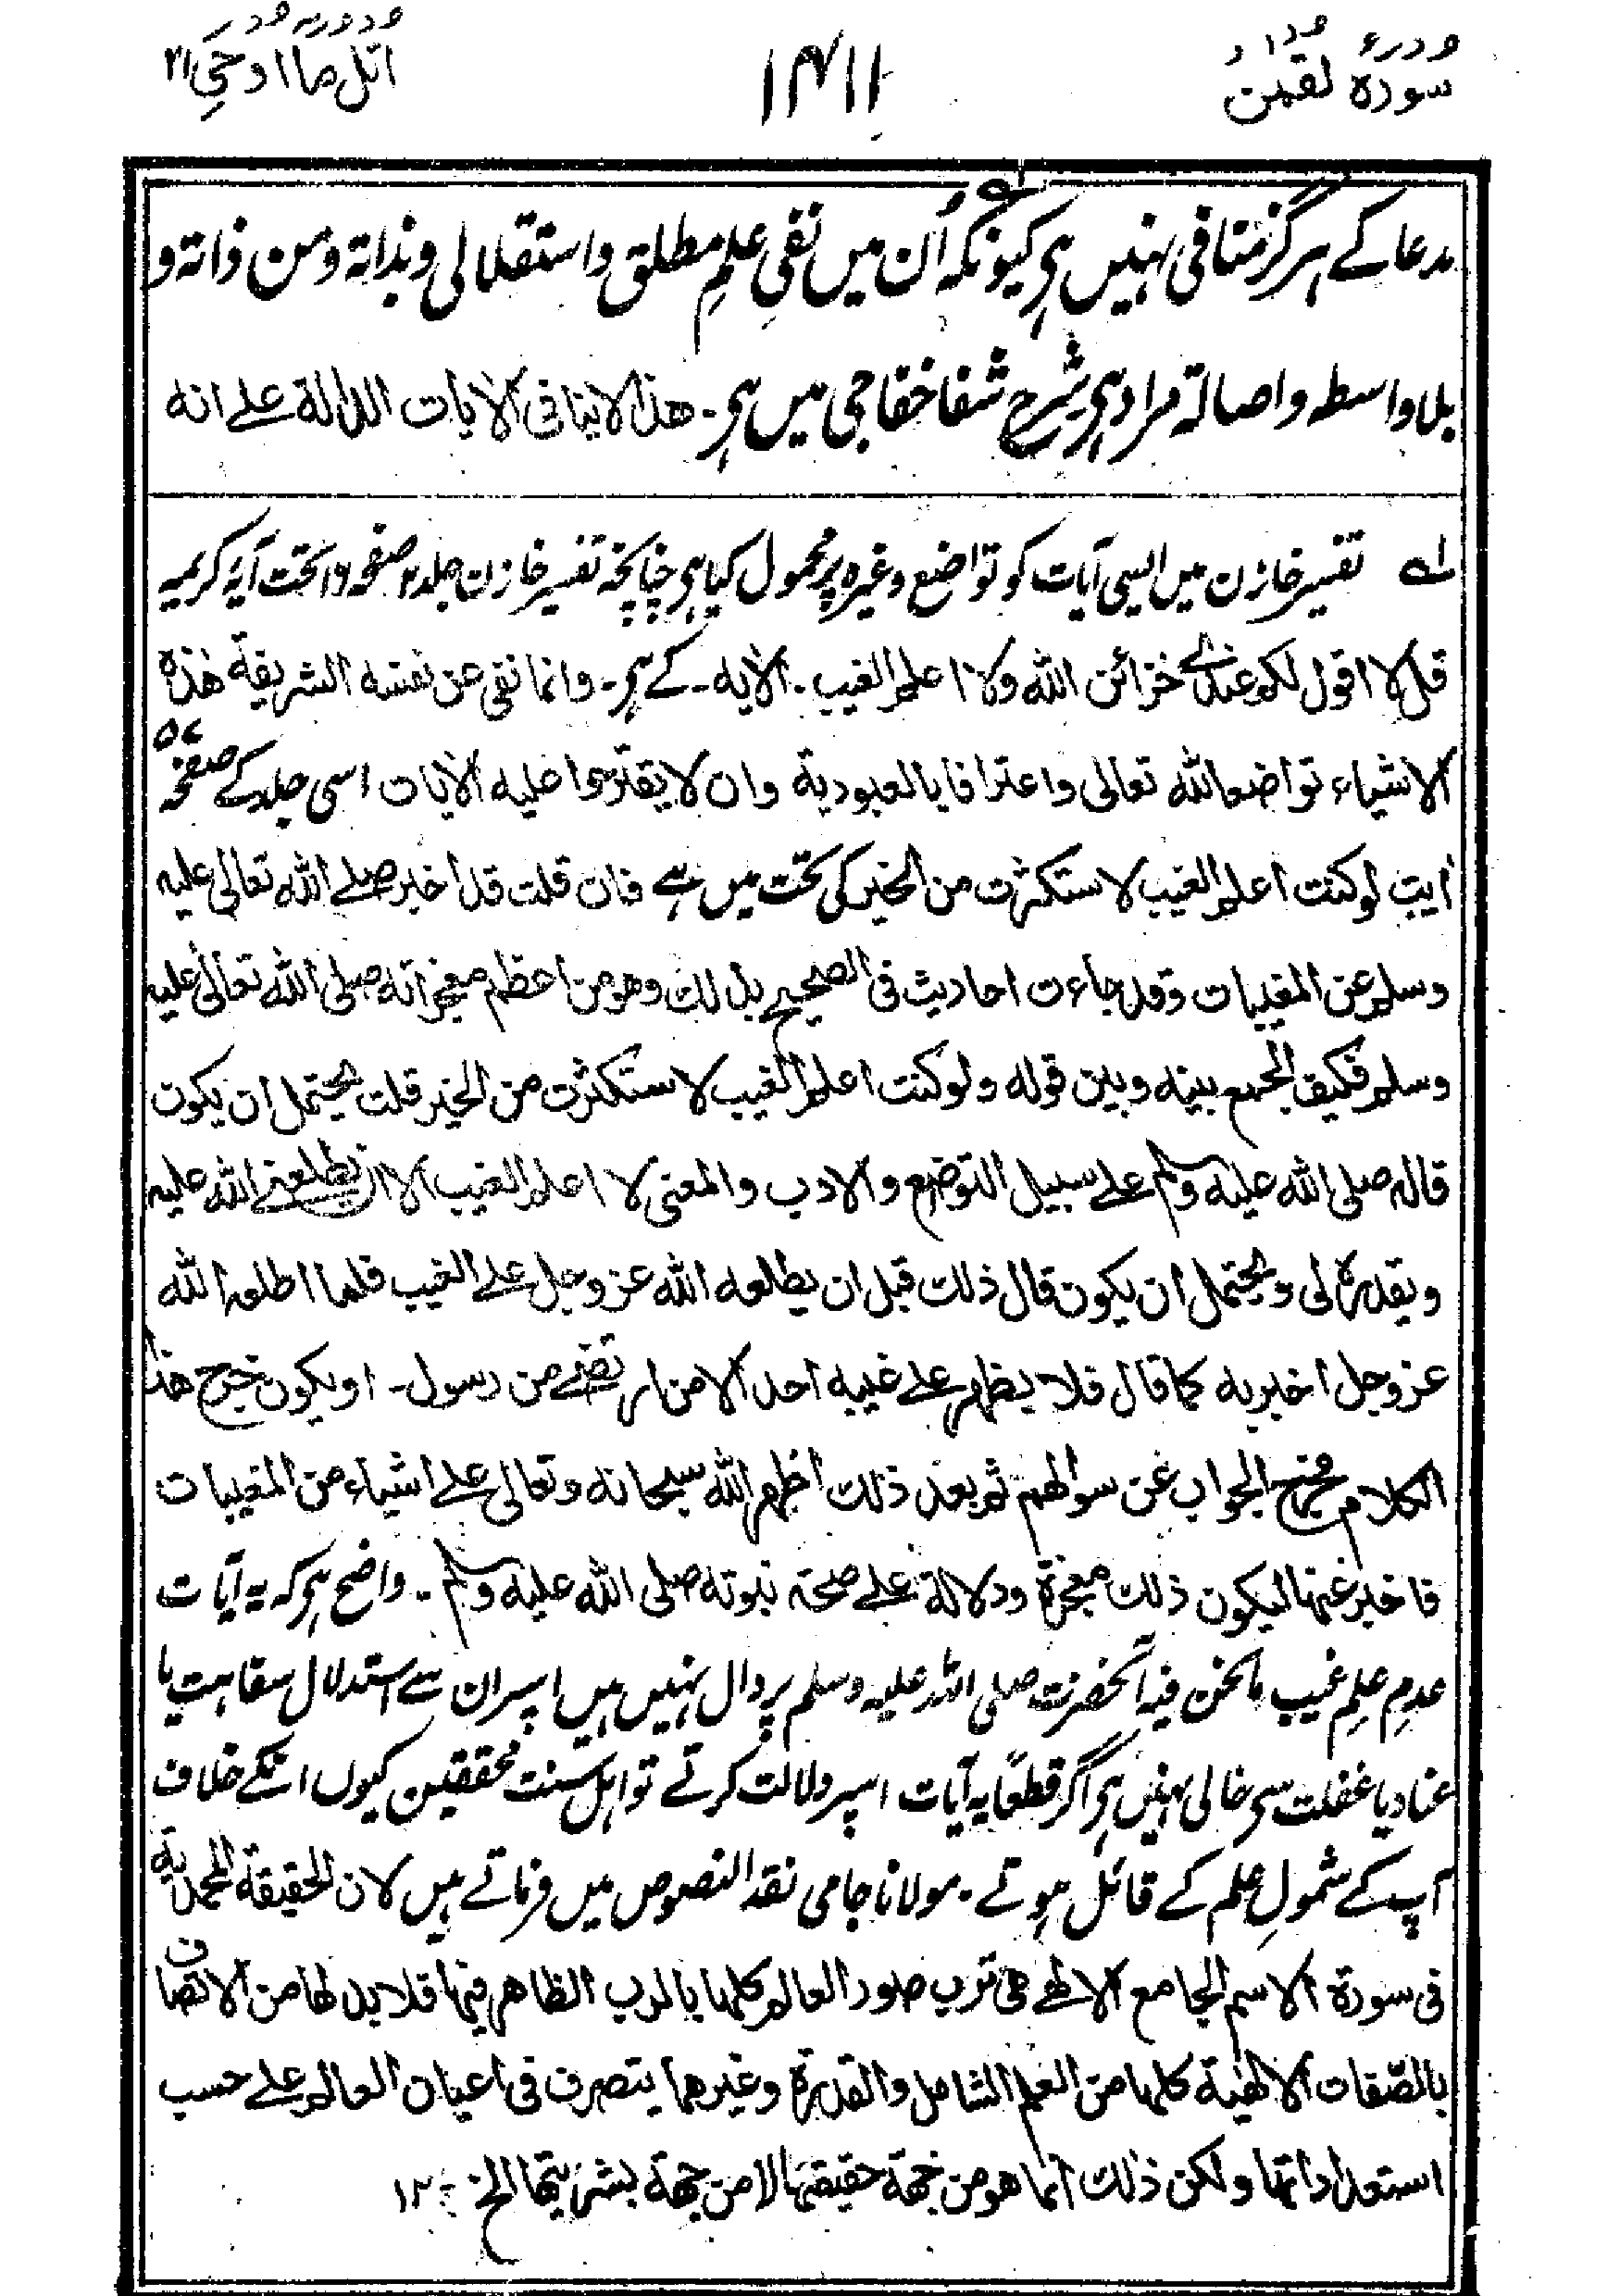 سورة لقمٰن
۱۴۱۱
اتل ما اوحی ۲۱
مدعا کے ہرگز منافی نہیں ہی کیونکہ اُن میں نفیِ علمِ مطلق واستقلالی وبذاتہ ومن ذاتہ و
بلاواسطہ واصالۃ مراد ہی شرح شفا خفاجی میں ہی۔ ھذا لاینافی الآیات الدالة علے انہ
تفسیر خازن میں ایسی آیات کو تواضع وغیرہ پر محمول کیا ہی چنانچہ تفسیر خازن جلد ۲ صفحہ ۱۶ تحت آیۂ کریمہ
قل لا اقول لکم عندی خزائن الله ولا اعلم الغیب۔ الآیہ۔ کے ہی۔ وانما نفی عن نفسہ الشریفة ھذہ
الاشیاء تواضعا لله تعالی واعترافا بالعبودیة وان لا یقترحوا علیہ الآیات اسی جلد کے صفحہ ۵۷
آیت لو کنت اعلم الغیب لاستکثرت من الخیر کی تحت میں ہے فان قلت قد اخبر صلے الله تعالی علیہ
وسلم عن المغیبات وقد جاءت احادیث فی الصحیح بذلک وھو من اعظم معجزاتہ صلی الله تعالی علیہ
وسلم فکیف الجمع بینہ وبین قولہ ولو کنت اعلم الغیب لاستکثرت من الخیر قلت یحتمل ان یکون
قالہ صلی الله علیہ وسلم علے سبیل التوضع والادب والمعنی لا اعلم الغیب الا ان یطلعنے الله علیہ
ویقدرہ لی ویحتمل ان یکون قال ذلک قبل ان یطلعہ الله عز وجل علے الغیب فلما اطلعہ الله
عز وجل اخبر بہ کما قال فلا یظھر علے غیبہ احد الا من ارتضے من رسول۔ او یکون خرج ھذا
الکلام مخرج الجواب عن سوالھم ثم بعد ذلک اظھر الله سبحانہ وتعالی علے اشیاء من المغیبات
فاخبر عنھا لیکون ذلک معجزة ودلالة علے صحۃ نبوتہ صلی الله علیہ وسلم۔ واضح ہی کہ یہ آیات
عدمِ علمِ غیب مانحن فیہ آنحضرت صلی اللہ علیہ وسلم پر دال نہیں ہیں اسپر ان سے استدلال سفاہت یا
عناد یا غفلت سی خالی نہیں ہی اگر قطعًا یہ آیات اسپر دلالت کرتے تو اہل سنت محققین کیوں انکے خلاف
آپ کے شمولِ علم کے قائل ہوتے۔ مولانا جامی نقد النصوص میں فرماتے ہیں لان الحقیقة المحمدیة
فی سورة الاسم الجامع الالٰھی ھی ترب صور العالم کلھا بالرب الظاھر فیھا فلا بد لھا من الاتصاف
بالصّفات الالٰھیة کلھا من العلم الشامل والقدرة وغیرھما یتصرف فی اعیان العالم علے حسب
استعداداتھا ولکن ذلک انما ھو من جھة حقیقتھا لا من جھة بشریتھا الخ ۱۲